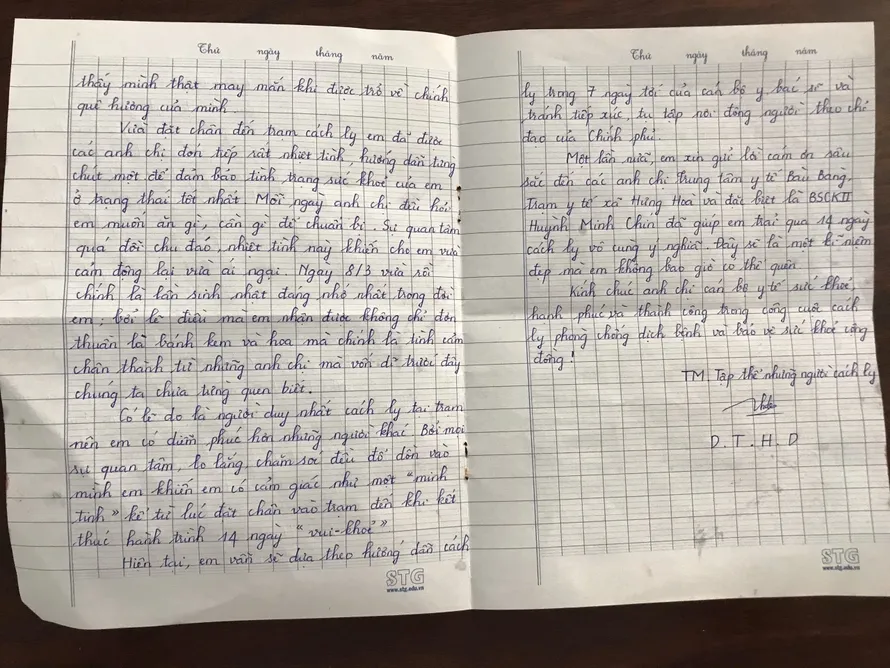 Thứ ngày tháng năm
thấy mình thật may mắn khi được trở về chính
quê hương của mình.
Vừa đặt chân đến trạm cách ly em đã được
các anh chị đón tiếp rất nhiệt tình, hướng dẫn từng
chút một để đảm bảo tình trạng sức khoẻ của em
ở trạng thái tốt nhất. Mỗi ngày anh chị đều hỏi
em muốn ăn gì, cần gì để chuẩn bị. Sự quan tâm
quá đỗi chu đáo, nhiệt tình này khiến cho em vừa
cảm động lại vừa ái ngại. Ngày 8/3 vừa rồi
chính là lần sinh nhật đáng nhớ nhất trong đời
em; bởi lẽ điều mà em nhận được không chỉ đơn
thuần là bánh kem và hoa mà chính là tình cảm
chân thành từ những anh chị mà vốn dĩ trước đây
chúng ta chưa từng quen biết.
Có lẽ do là người duy nhất cách ly tại trạm
nên em có diễm phúc hơn những người khác. Bởi mọi
sự quan tâm, lo lắng, chăm sóc đều đổ dồn vào
mình em khiến em có cảm giác như một "minh
tinh" kể từ lúc đặt chân vào trạm đến khi kết
thúc hành trình 14 ngày "vui-khoẻ"
Hiện tại, em vẫn sẽ dựa theo hướng dẫn cách
STG
www.stg.edu.vn
Thứ ngày tháng năm
ly trong 7 ngày tới của cán bộ y, bác sĩ và
tránh tiếp xúc, tụ tập nơi đông người theo chỉ
đạo của Chính phủ.
Một lần nữa, em xin gửi lời cám ơn sâu
sắc đến các anh chị Trung tâm y tế Bàu Bàng.
Trạm y tế xã Hưng Hoà và đặc biệt là BSCKII
Huỳnh Minh Chín đã giúp em trải qua 14 ngày
cách ly vô cùng ý nghĩa. Đây sẽ là một kỉ niệm
đẹp mà em không bao giờ có thể quên.
Kính chúc anh chị cán bộ y tế sức khoẻ,
hạnh phúc và thành công trong công cuộc cách
ly phòng chống dịch bệnh và bảo vệ sức khoẻ cộng
đồng!
TM. Tập thể những người cách ly
D. T. H. D
STG
www.stg.edu.vn